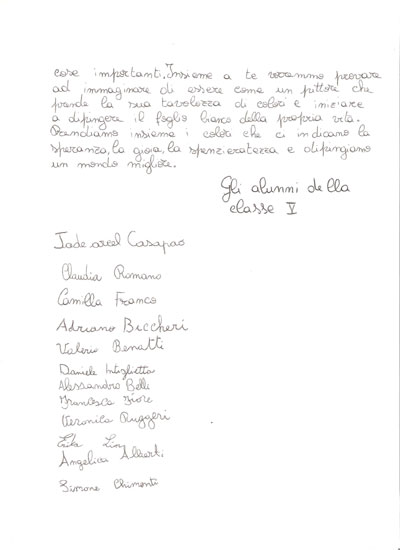 cose importanti. Insieme a te vorremmo provare
ad immaginare di essere come un pittore che
prende la sua tavolozza di colori e iniziare
a dipingere il foglio bianco della propria vita.
Prendiamo insieme i colori che ci indicano la
speranza, la gioia, la spenzieratezza e dipingiamo
un mondo migliore.
Gli alunni della
classe V
Jade arcel Casapao
Claudia Romano
Camilla Franco
Adriano Biccheri
Valerio Benatti
Daniele Intiglietta
Alessandro Belli
Francesca Fiore
Veronica Ruggeri
Erika Lin
Angelica Alberti
Simone Chimenti